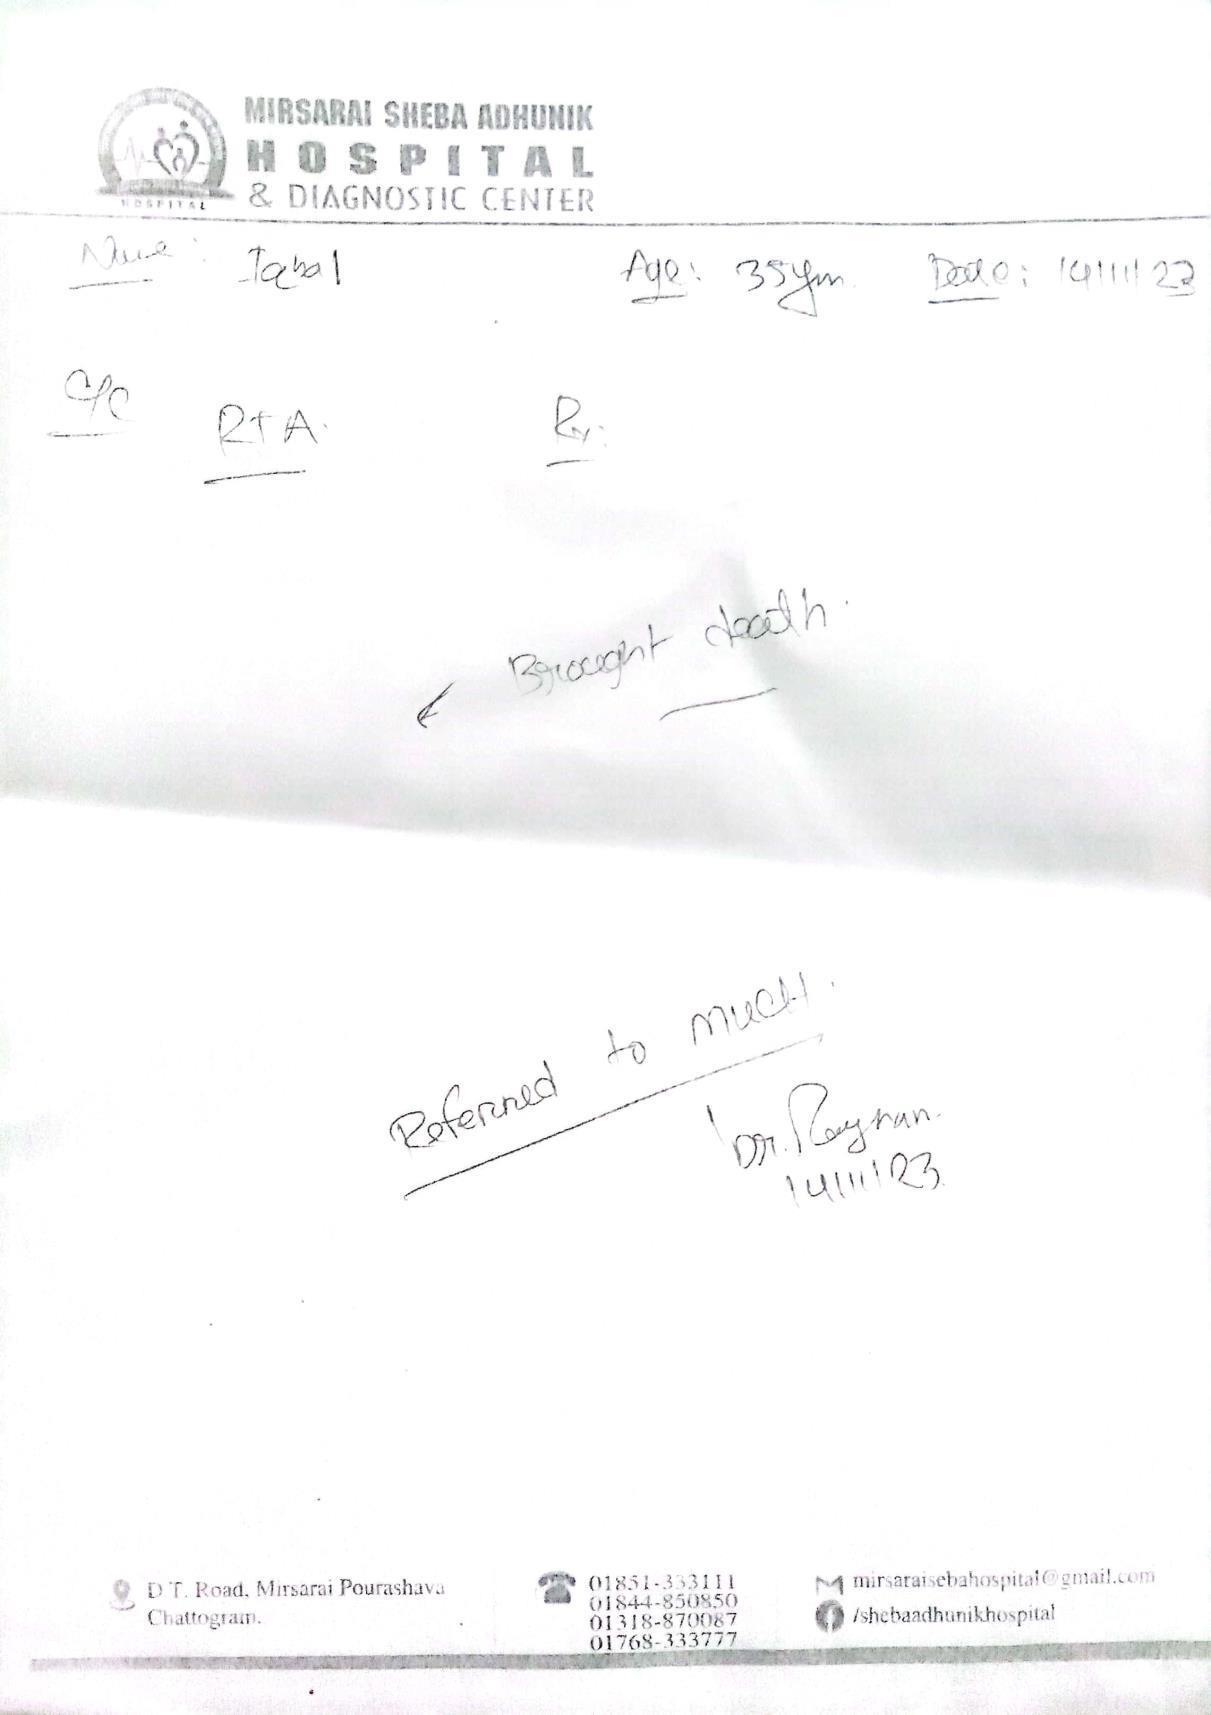 MIRSARAI SHEBA ADHUNIK
HOSPITAL
& DIAGNOSTIC CENTER
HOSPITAL
Name: Iqbal Age: 35 ym. Date: 14/11/23
C/C
RTA. Rx:
Brought death.
Referred to MUCH.
Dr. Rayhan.
14/11/23
D T. Road, Mirsarai Pourashava
Chattogram.
01851-333111
01844-850850
01318-870087
01768-333777
mirsaraisebahospital@gmail.com
/shebaadhunikhospital